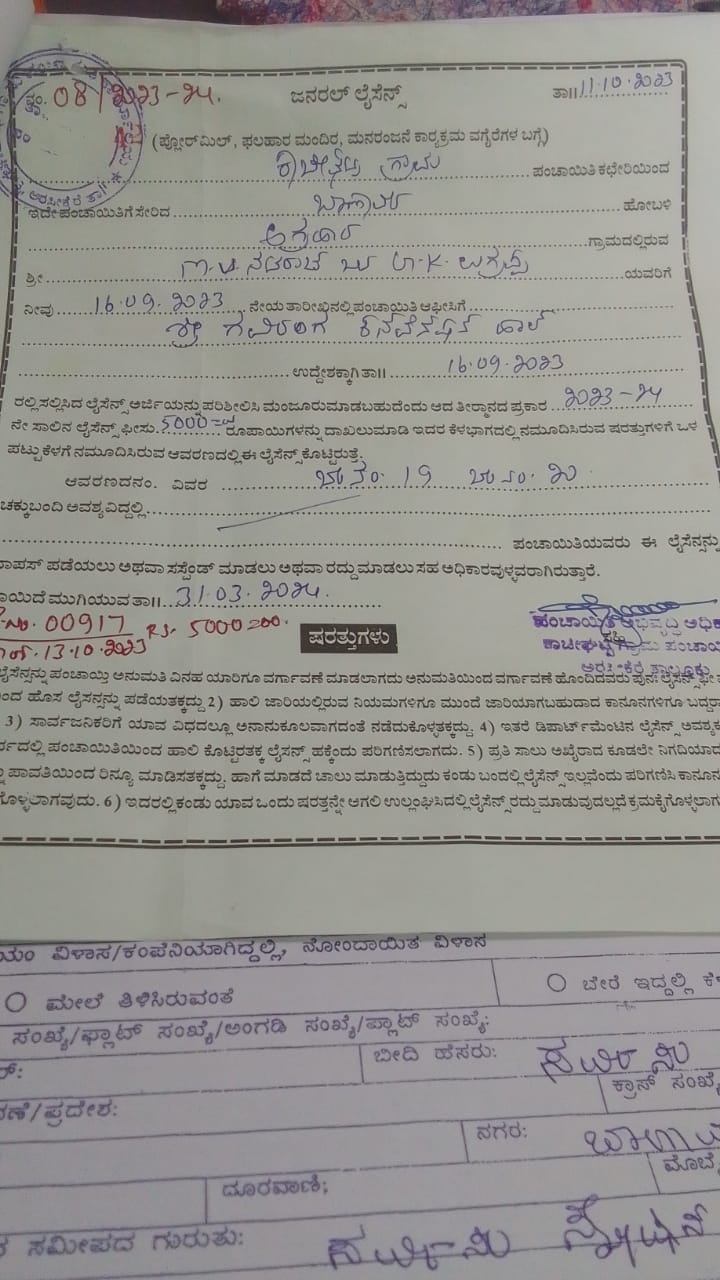 ನಂ. 08/2023-24.
ಜನರಲ್ ಲೈಸೆನ್ಸ್
ತಾ॥ 11.10.2023
(ಫ್ಲೋರ್‌ಮಿಲ್, ಫಲಹಾರ ಮಂದಿರ, ಮನರಂಜನೆ ಕಾರ್‍ಯಕ್ರಮ ವಗೈರೆಗಳ ಬಗ್ಗೆ)
ಗ್ರಾಮ ಪಂಚಾಯಿತಿ ಕಛೇರಿಯಿಂದ
ಇದೇ ಪಂಚಾಯಿತಿಗೆ ಸೇರಿದ ಹೋಬಳಿ
ಅಗ್ರಹಾರ ಗ್ರಾಮದಲ್ಲಿರುವ
ಶ್ರೀ ಯವರಿಗೆ
ನೀವು 16.09.2023 ನೇಯ ತಾರೀಖಿನಲ್ಲಿ ಪಂಚಾಯಿತಿ ಆಫೀಸಿಗೆ
ಶ್ರೀ ಕನವೆನ್ಷನ್ ಹಾಲ್
ಉದ್ದೇಶಕ್ಕಾಗಿ ತಾ॥ 16.09.2023
ರಲ್ಲಿ ಸಲ್ಲಿಸಿದ ಲೈಸೆನ್ಸ್ ಅರ್ಜಿಯನ್ನು ಪರಿಶೀಲಿಸಿ ಮಂಜೂರುಮಾಡಬಹುದೆಂದು ಆದ ತೀರ್ಮಾನದ ಪ್ರಕಾರ 2023-24
ನೇ ಸಾಲಿನ ಲೈಸೆನ್ಸ್ ಫೀಸು 5000=00 ರೂಪಾಯಿಗಳನ್ನು ದಾಖಲುಮಾಡಿ ಇದರ ಕೆಳಭಾಗದಲ್ಲಿ ನಮೂದಿಸಿರುವ ಷರತ್ತುಗಳಿಗೆ ಒಳ
ಪಟ್ಟು ಕೆಳಗೆ ನಮೂದಿಸಿರುವ ಆವರಣದಲ್ಲಿ ಈ ಲೈಸೆನ್ಸ್ ಕೊಟ್ಟಿರುತ್ತೆ.
ಆವರಣದ ನಂ. ವಿವರ 19
ಚಕ್ಕುಬಂದಿ ಅವಶ್ಯವಿದ್ದಲ್ಲಿ
ಪಂಚಾಯಿತಿಯವರು ಈ ಲೈಸೆನ್ಸನ್ನು
ವಾಪಸ್ ಪಡೆಯಲು ಅಥವಾ ಸಸ್ಪೆಂಡ್ ಮಾಡಲು ಅಥವಾ ರದ್ದು ಮಾಡಲು ಸಹ ಅಧಿಕಾರವುಳ್ಳವರಾಗಿರುತ್ತಾರೆ.
ವಾಯಿದೆ ಮುಗಿಯುವ ತಾ॥ 31.03.2024.
No. 00917 Rs. 5000=00.
13.10.2023
ಷರತ್ತುಗಳು
ಪಂಚಾಯಿತಿ ಅಭಿವೃದ್ಧಿ ಅಧಿಕ
ಗ್ರಾಮ ಪಂಚಾಯ
ಅರಸೀಕೆರೆ ತಾಲ್ಲೂಕು
ಲೈಸೆನ್ಸನ್ನು ಪಂಚಾಯ್ತಿ ಅನುಮತಿ ವಿನಹ ಯಾರಿಗೂ ವರ್ಗಾವಣೆ ಮಾಡಲಾಗದು ಅನುಮತಿಯಿಂದ ವರ್ಗಾವಣೆ ಹೊಂದಿದವರು ಪುನಃ ಲೈಸೆನ್ಸ್ ಫೀ
ಂದ ಹೊಸ ಲೈಸನ್ಸನ್ನು ಪಡೆಯತಕ್ಕದ್ದು 2) ಹಾಲಿ ಜಾರಿಯಲ್ಲಿರುವ ನಿಯಮಗಳಿಗೂ ಮುಂದೆ ಜಾರಿಯಾಗಬಹುದಾದ ಕಾನೂನಗಳಿಗೂ ಬದ್ಧರಾ
3) ಸಾರ್ವಜನಿಕರಿಗೆ ಯಾವ ವಿಧದಲ್ಲೂ ಅನಾನುಕೂಲವಾಗದಂತೆ ನಡೆದುಕೊಳ್ಳತಕ್ಕದ್ದು. 4) ಇತರೆ ಡಿಪಾರ್ಟ್‌ಮೆಂಟಿನ ಲೈಸೆನ್ಸ್ ಅವಶ್ಯಕ
ರ್ಭದಲ್ಲಿ ಪಂಚಾಯಿತಿಯಿಂದ ಹಾಲಿ ಕೊಟ್ಟಿರತಕ್ಕ ಲೈಸನ್ಸ್ ಹಕ್ಕೆಂದು ಪರಿಗಣಿಸಲಾಗದು. 5) ಪ್ರತಿ ಸಾಲು ಅಖೈರಾದ ಕೂಡಲೇ ನಿಗದಿಯಾದ
ಪಾವತಿಯಿಂದ ರಿನ್ಯೂ ಮಾಡಿಸತಕ್ಕದ್ದು. ಹಾಗೆ ಮಾಡದೆ ಚಾಲು ಮಾಡುತ್ತಿದ್ದುದು ಕಂಡು ಬಂದಲ್ಲಿ ಲೈಸೆನ್ಸ್ ಇಲ್ಲವೆಂದು ಪರಿಗಣಿಸಿ ಕಾನೂನ
ಗೊಳ್ಳಲಾಗವುದು. 6) ಇದರಲ್ಲಿ ಕಂಡು ಯಾವ ಒಂದು ಷರತ್ತನ್ನೇ ಆಗಲಿ ಉಲ್ಲಂಘಿಸಿದಲ್ಲಿ ಲೈಸೆನ್ಸ್ ರದ್ದು ಮಾಡುವುದಲ್ಲದೆ ಕ್ರಮಕೈಗೊಳ್ಳಲಾಗ
ಯಂ ವಿಳಾಸ/ಕಂಪೆನಿಯಾಗಿದ್ದಲ್ಲಿ, ನೋಂದಾಯಿತ ವಿಳಾಸ
ಮೇಲೆ ತಿಳಿಸಿರುವಂತೆ
ಬೇರೆ ಇದ್ದಲ್ಲಿ ಕೆಳ
ಸಂಖ್ಯೆ/ಫ್ಲಾಟ್ ಸಂಖ್ಯೆ/ಅಂಗಡಿ ಸಂಖ್ಯೆ/ಪ್ಲಾಟ್ ಸಂಖ್ಯೆ:
ಬೀದಿ ಹೆಸರು:
ಕ್ರಾಸ್ ಸಂಖ್ಯೆ
ಣೆ/ಪ್ರದೇಶ:
ನಗರ:
ದೂರವಾಣಿ;
ಮೊಬೈ
ಸಮೀಪದ ಗುರುತು: